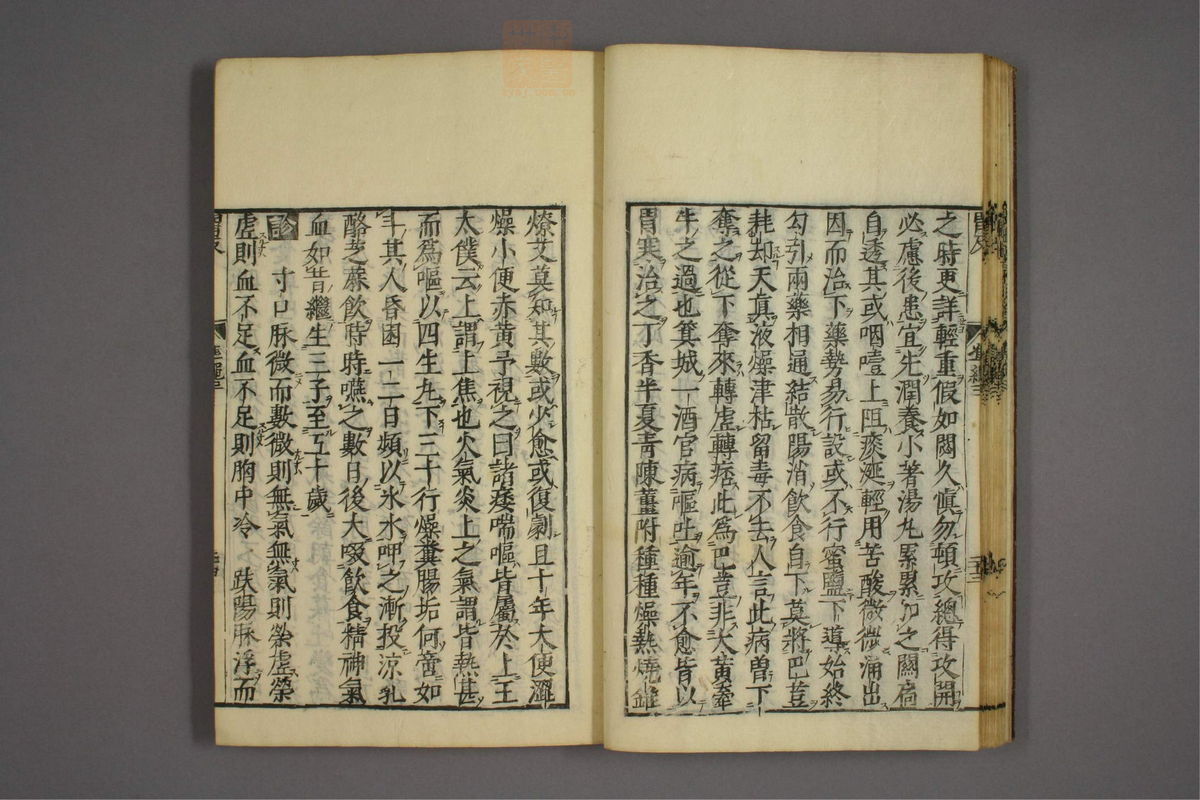 之時更詳輕重假如閟久慎勿頓攻總得攻開
必慮後患宜先潤養小著湯丸累累加之關扃
自透其或咽噎上阻痰涎輕用苦酸微微涌出
因而治下藥勢易行設或不行蜜鹽下導始終
勾引兩藥相通結散陽消飲食自下莫將巴荳
耗却天真液燥津枯留毒不去人言此病曽下
奪之從下奪來轉虛轉痞此爲巴荳非大黃牽
牛之過也箕城一酒官病嘔吐逾年不愈皆以
胃寒治之丁香半夏青陳薑附種種燥熱燒錐
燎艾莫知其數或少愈或復劇且十年大便澀
燥小便赤黃予視之曰諸痿喘嘔皆屬於上王
太僕云上謂上焦也火氣炎上之氣謂皆熱甚
而爲嘔以四生丸下三十行燥糞腸垢何啻如
斗其人昏困一二日頻以氷水呷之漸投凉乳
酪芝蔴飲時時嚥之數日後大啜飲食精神氣
血如昔繼生三子至五十歲
診 寸口脉微而數微則無氣無氣則榮虛榮
虛則血不足血不足則胸中冷 趺陽脉浮而